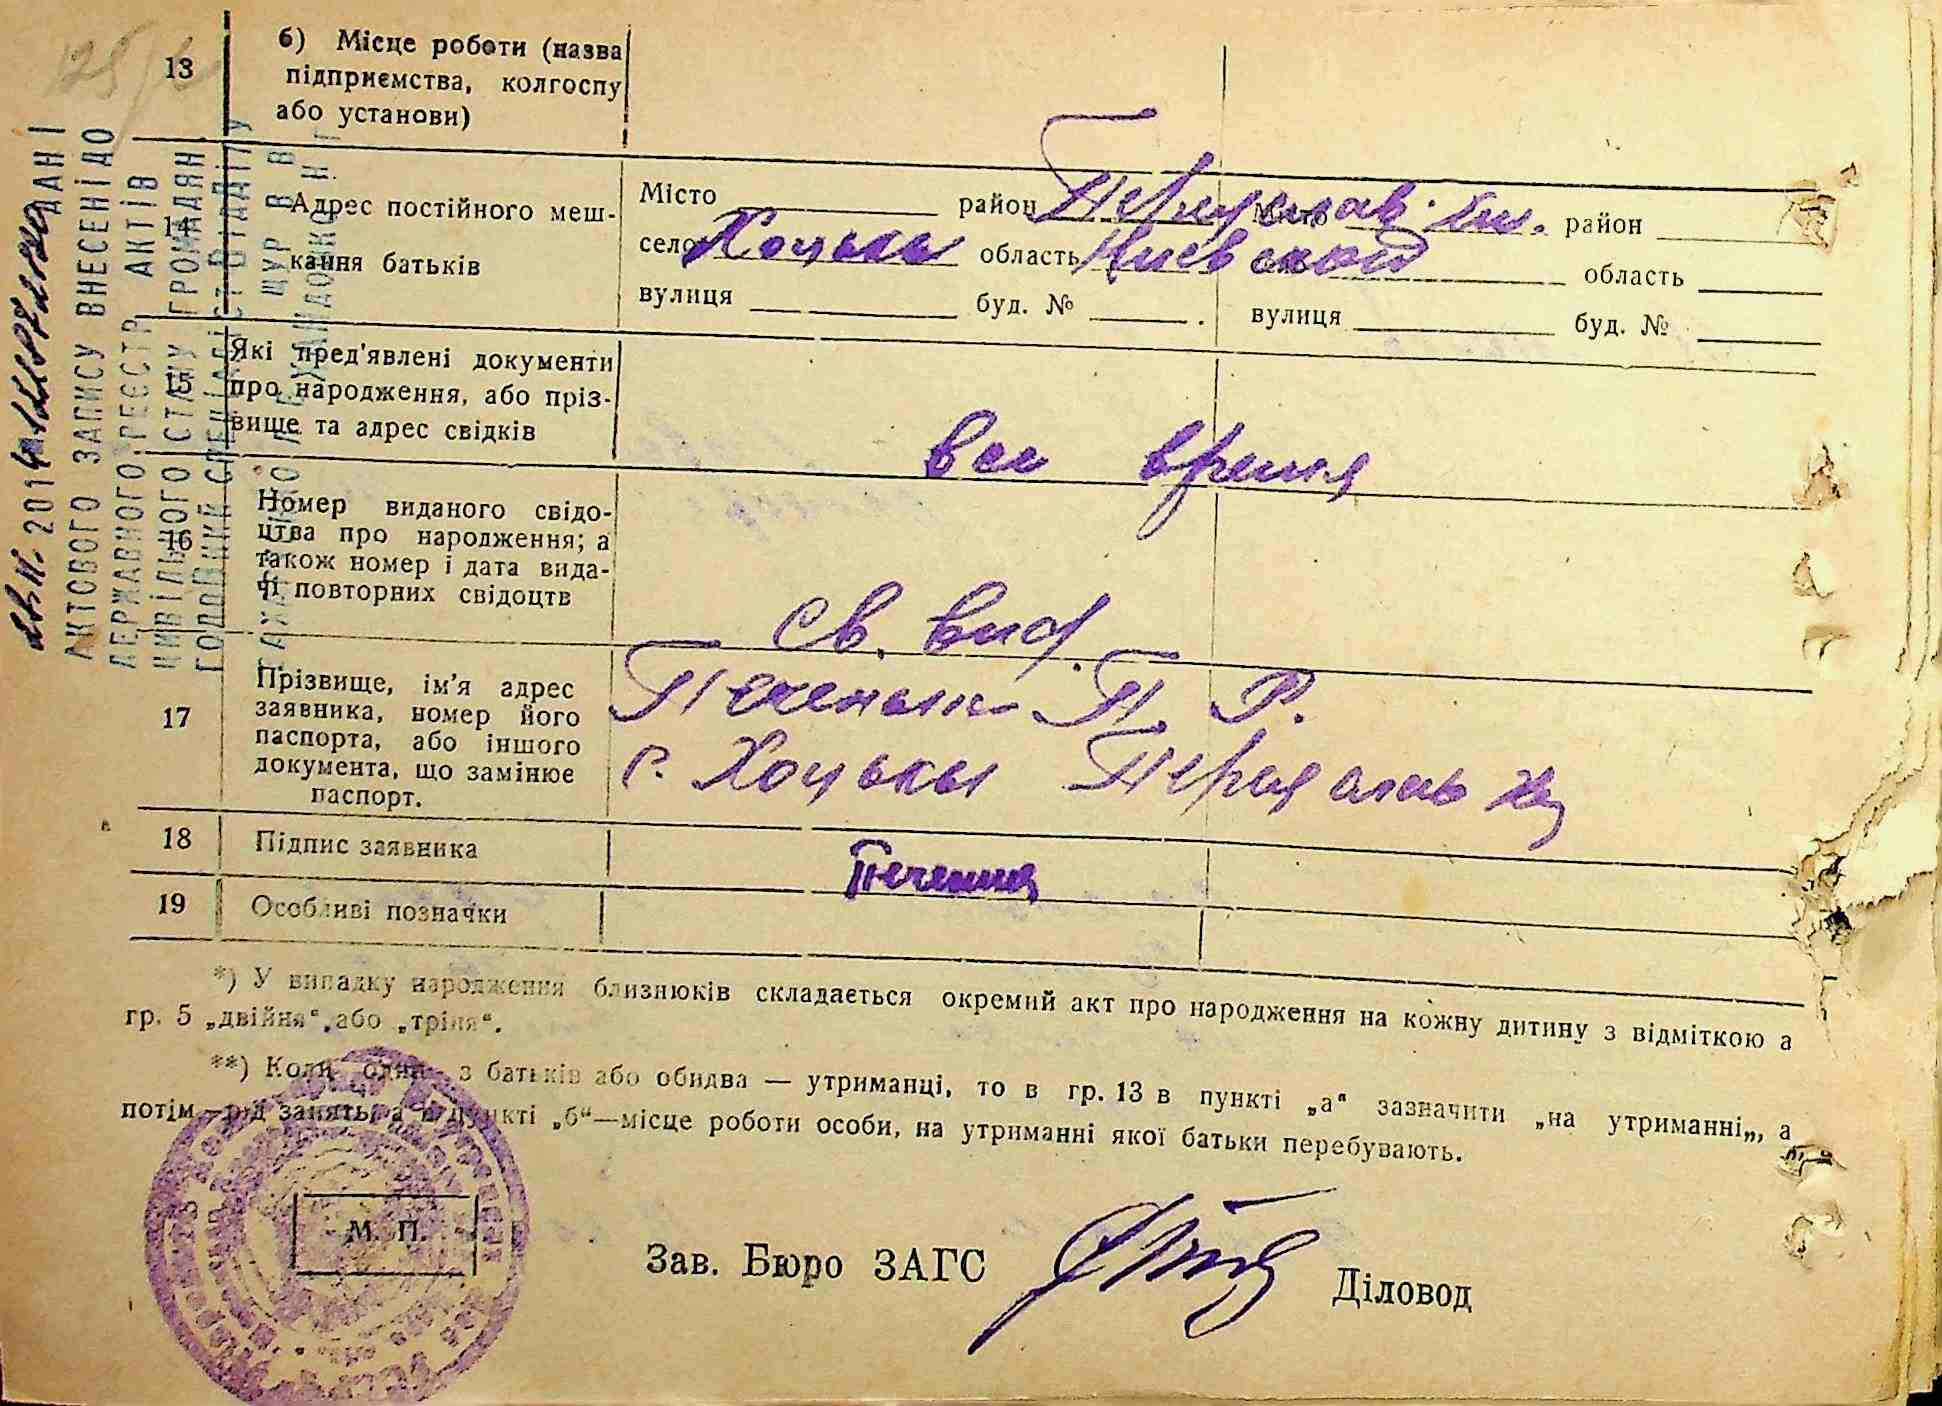 13
б) Місце роботи (назва
підприємства, колгоспу
або установи)
14
Адрес постійного меш-
кання батьків
Місто район Переяслав. Хм. Місто район
село Хоцьки область Киевской село область
вулиця буд. № вулиця буд. №
15
Які пред'явлені документи
про народження, або пріз-
вище та адрес свідків
все время
16
Номер виданого свідо-
цтва про народження; а
також номер і дата вида-
чі повторних свідоцтв
св. выд.
17
Прізвище, ім'я адрес
заявника, номер його
паспорта, або іншого
документа, що замінює
паспорт.
П. Р.
с. Хоцьки Переяслав Хм
18
Підпис заявника
19
Особливі позначки
*) У випадку народження близнюків складається окремий акт про народження на кожну дитину з відміткою а
гр. 5 „двійня“, або „трійня“.
**) Коли один з батьків або обидва — утриманці, то в гр. 13 в пункті „а“ зазначити „на утриманні„, а
потім—рід занять, а в пункті „б“—місце роботи особи, на утриманні якої батьки перебувають.
М. П.
Зав. Бюро ЗАГС
Діловод
ДАНІ
АКТОВОГО ЗАПИСУ ВНЕСЕНІ ДО
ДЕРЖАВНОГО РЕЄСТР АКТІВ
ЦИВІЛЬНОГО СТАНУ ГРОМАДЯН
ГОЛОВНИЙ СПЕЦІАЛІСТ ВІДДІЛУ